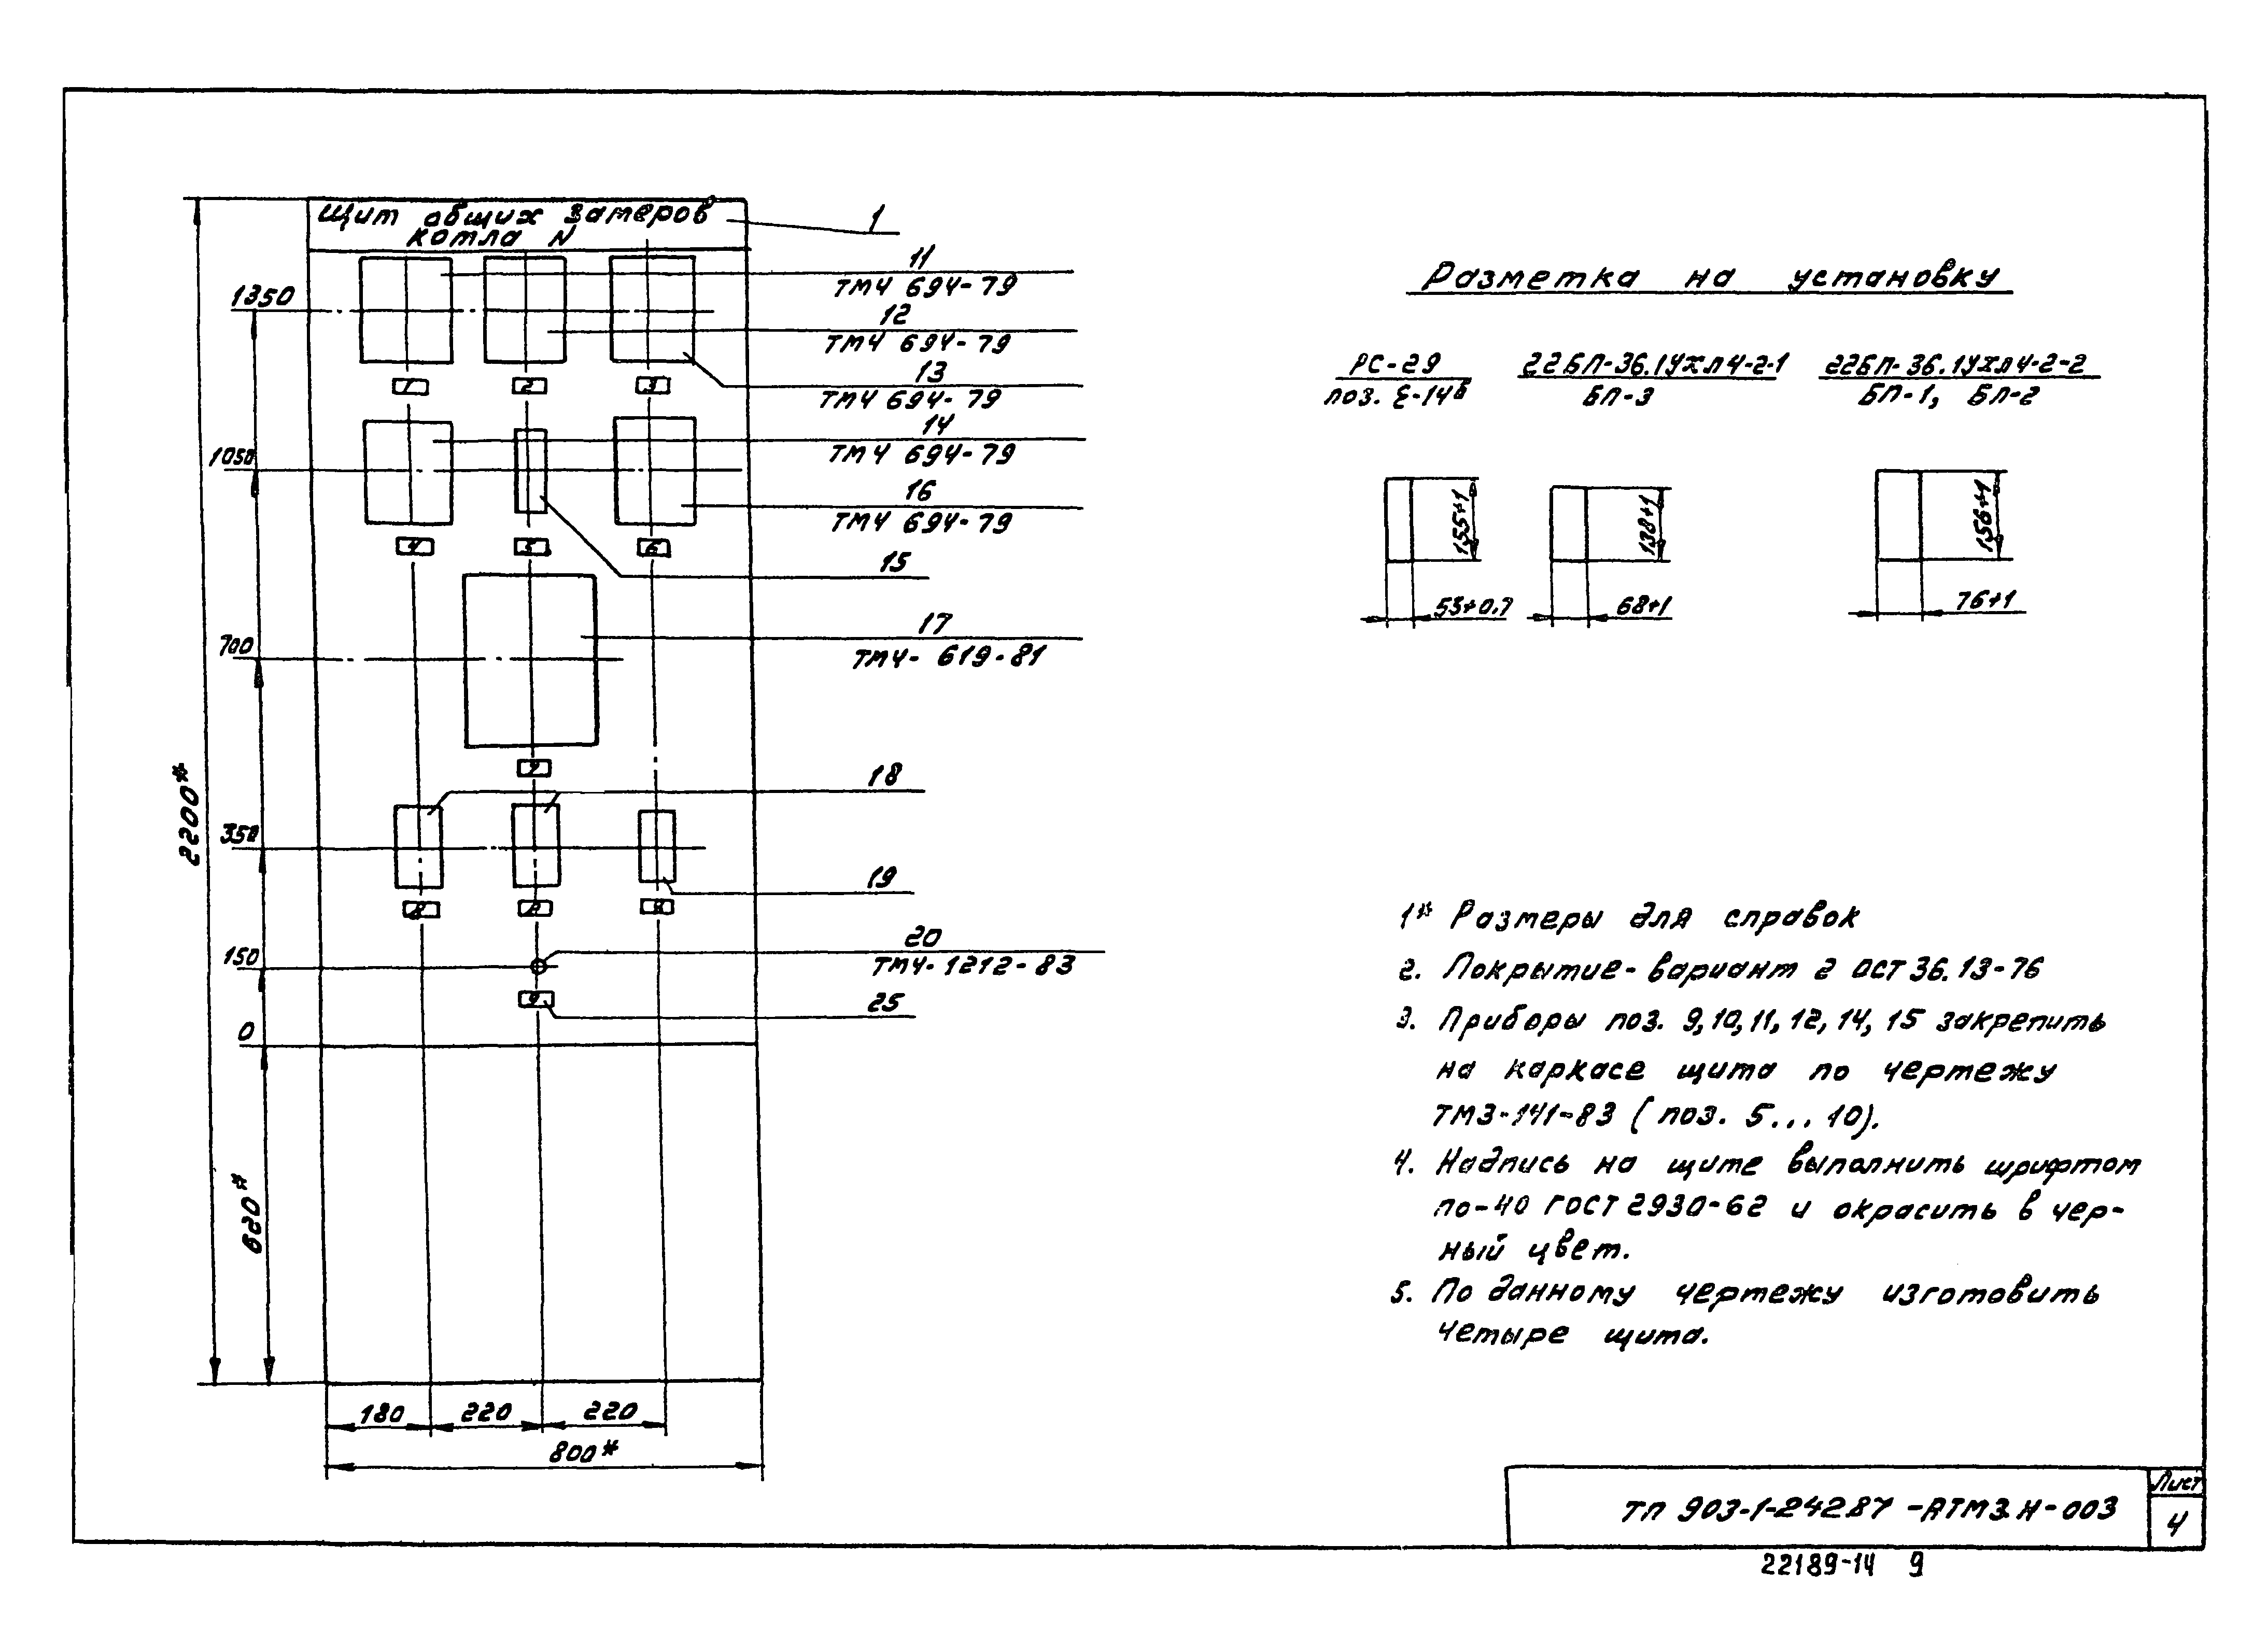 Щит общих замеров
котла N
1
11
ТМ4 694-79
12
ТМ4 694-79
13
ТМ4 694-79
14
ТМ4 694-79
16
ТМ4 694-79
15
17
ТМ4- 619-81
18
19
20
ТМ4-1212-83
25
1350
1050
700
350
150
0
2200*
620*
1 2 3
4 5 6
7
8
9
180 220 220
800*
Разметка на установку
РС-29
поз. Е-14б
22БП-36.1УХЛ4-2-1
БП-3
22БП-36.1УХЛ4-2-2
БП-1, БП-2
155+1
53+0.7
138+1
68+1
156+1
76+1
1* Размеры для справок
2. Покрытие-вариант 2 ОСТ 36.13-76
3. Приборы поз. 9,10,11,12,14,15 закрепить
на каркасе щита по чертежу
ТМ3-141-83 (поз. 5...10).
4. Надпись на щите выполнить шрифтом
по-40 ГОСТ 2930-62 и окрасить в чер-
ный цвет.
5. По данному чертежу изготовить
четыре щита.
ТП 903-1-242.87 -АТМ3.Н-003
Лист
4
22189-14 9